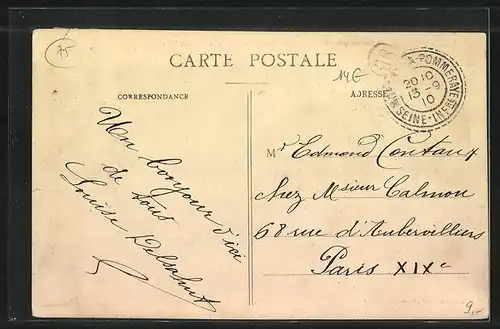 75
CARTE POSTALE
14€
OR
A-POMMERAYE
20 10
13 -9
10
SEINE-INFRE
CORRESPONDANCE
ADRESSE
Un bonjour d'ici
de tous
Louise
Mr Edmond Contaux
chez Msieur Calmon
68 rue d'Aubervilliers
Paris XIXe
9,-